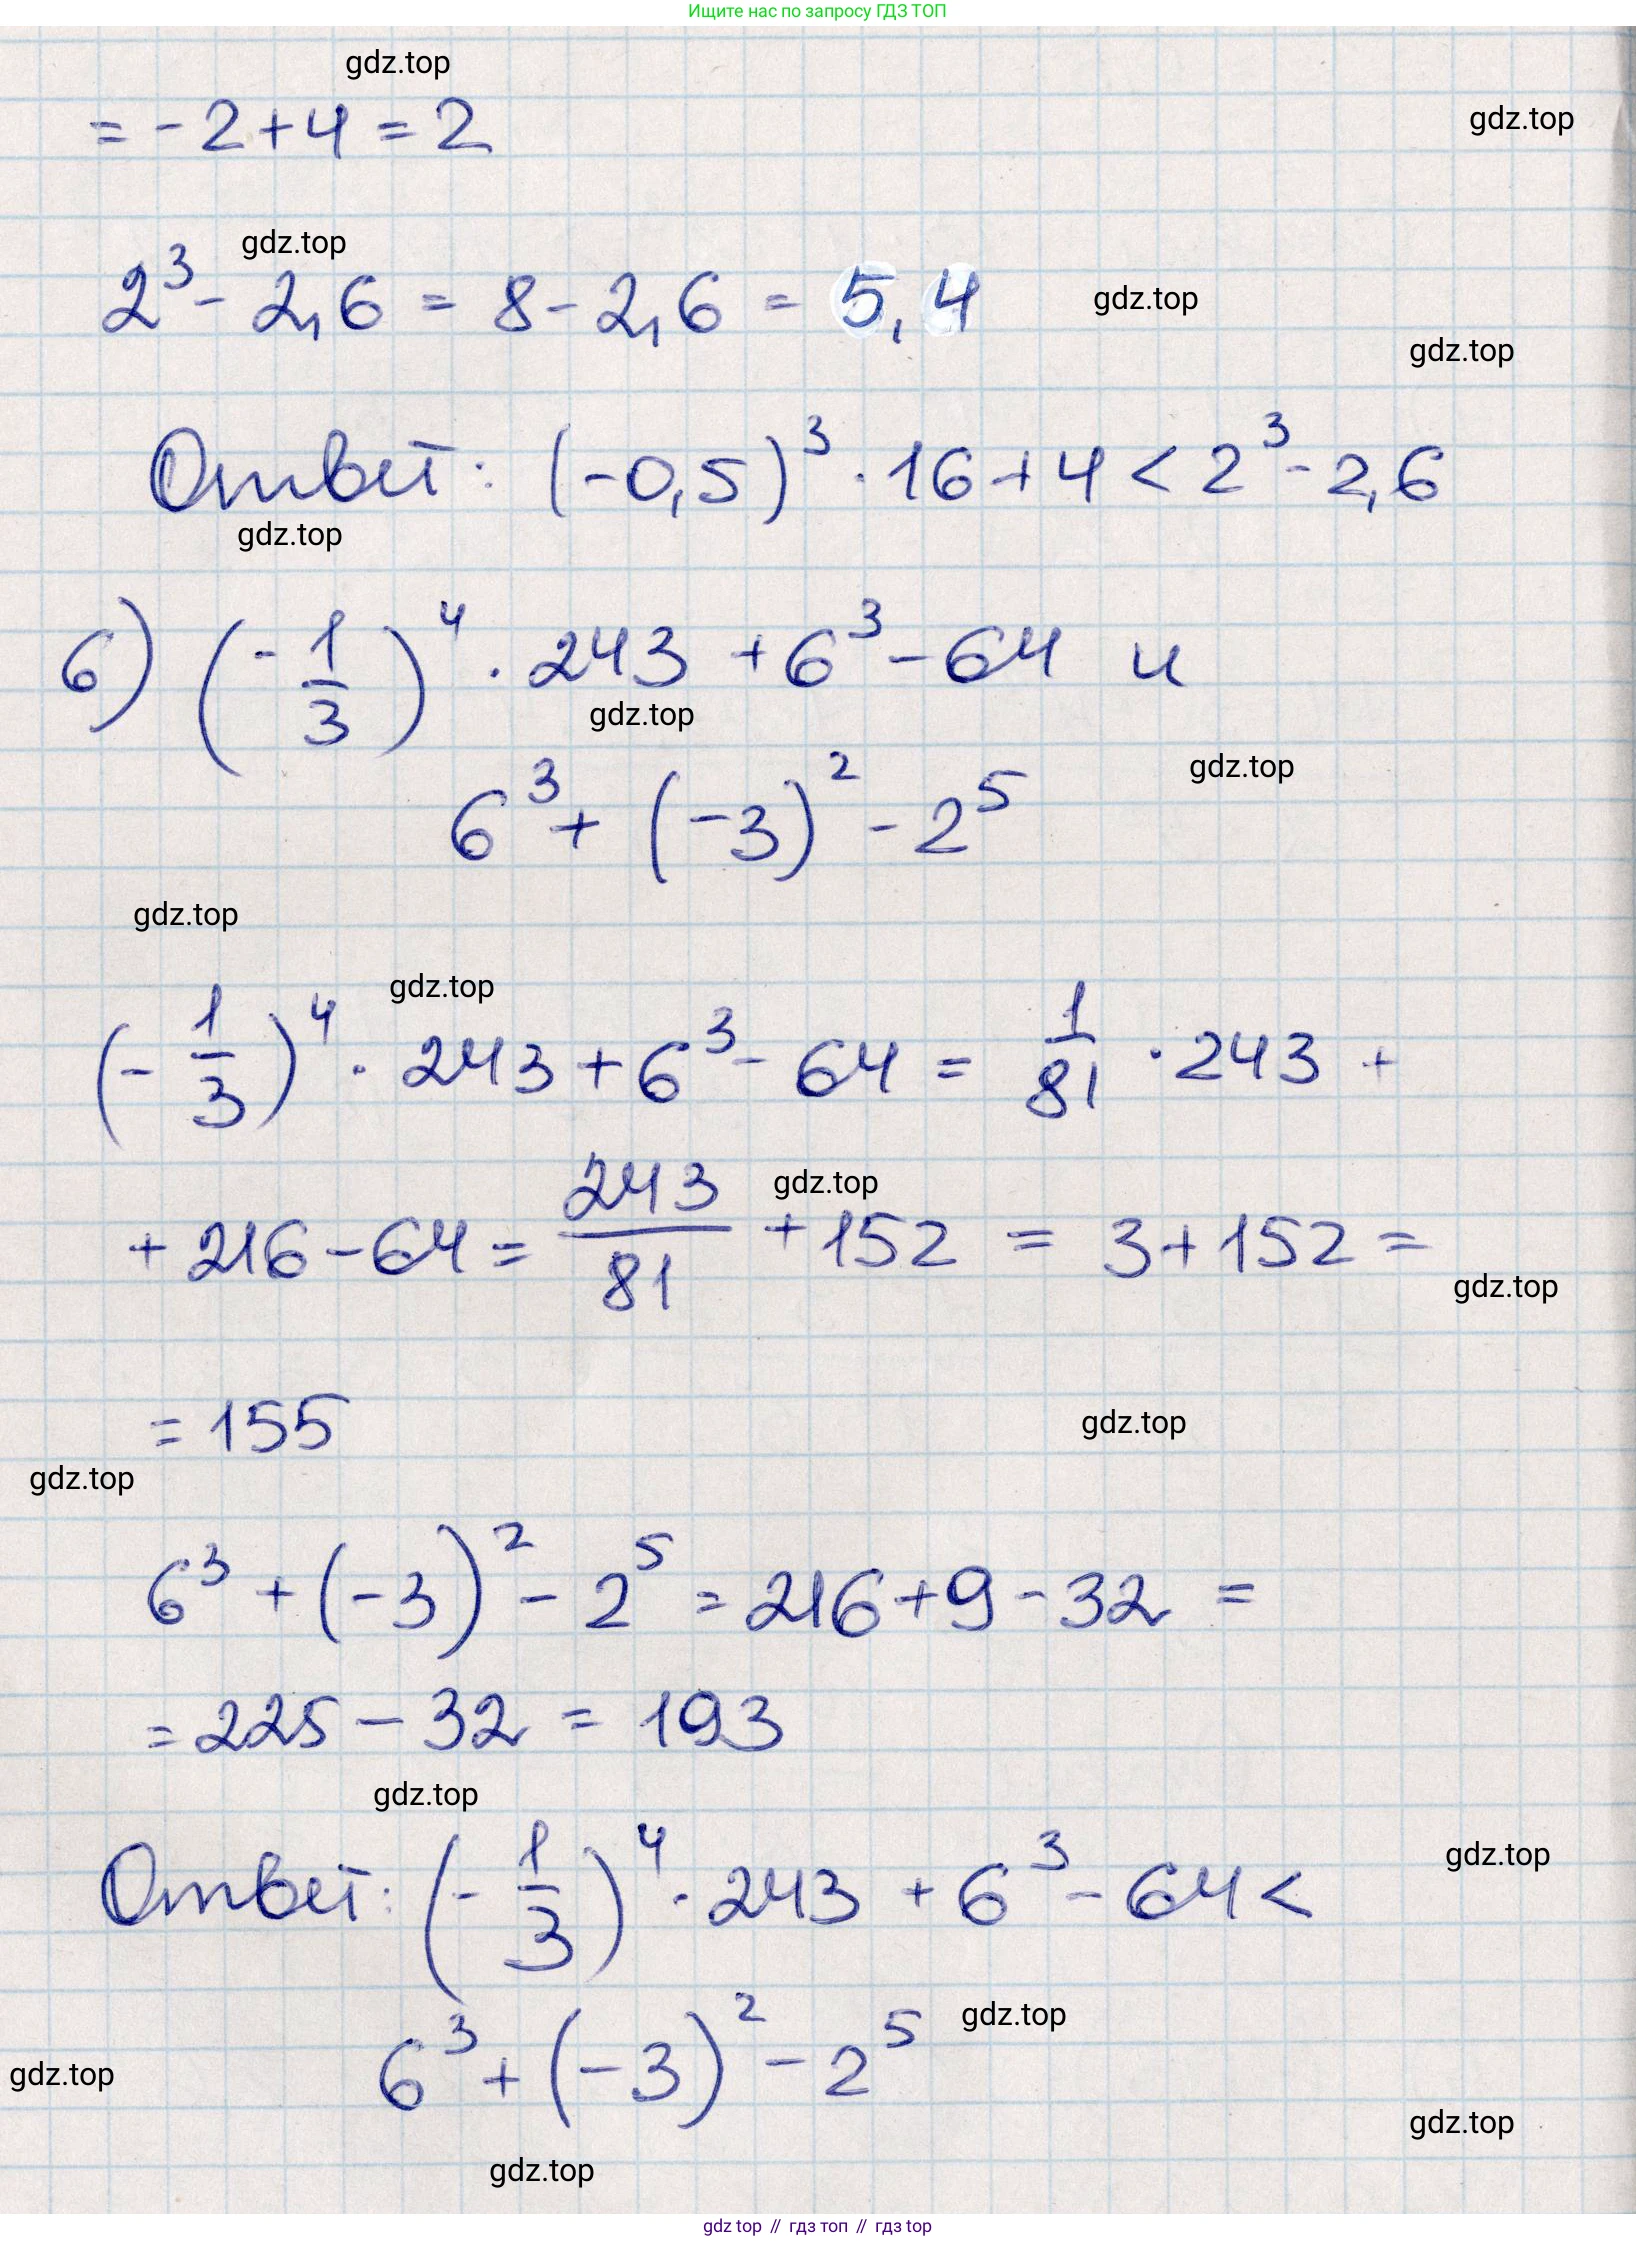 Ищите нас по запросу ГДЗ ТОП
gdz.top
= -2+4 = 2
gdz.top
gdz.top
2³ - 2,6 = 8 - 2,6 = 5,4
gdz.top
gdz.top
Ответ: (-0,5)³ · 16 + 4 < 2³ - 2,6
gdz.top
б) (-1/3)⁴ · 243 + 6³ - 64 и
gdz.top
6³ + (-3)² - 2⁵
gdz.top
gdz.top
gdz.top
(-1/3)⁴ · 243 + 6³ - 64 = 1/81 · 243 +
gdz.top
+ 216 - 64 = 243/81 + 152 = 3 + 152 =
gdz.top
= 155
gdz.top
gdz.top
6³ + (-3)² - 2⁵ = 216 + 9 - 32 =
= 225 - 32 = 193
gdz.top
Ответ: (-1/3)⁴ · 243 + 6³ - 64 <
gdz.top
gdz.top
6³ + (-3)² - 2⁵
gdz.top
gdz.top
gdz.top
gdz top // гдз топ // гдз top